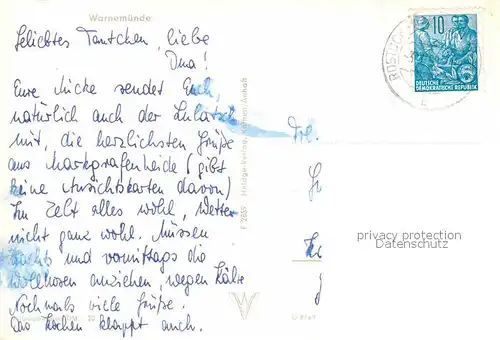 Warnemünde
Geliebtes Tantchen, liebe
Oma!
Eure Mücke sendet Euch,
natürlich auch der Lulatsch
mit, die herzlichsten Grüße
aus Markgrafenheide (gibt
keine Ansichtskarten davon)
Im Zelt alles wohl, Wetter
nicht ganz wohl. Müssen
nachts und vormittags die
Wollhosen anziehen, wegen Kälte
Nochmals viele Grüße.
Das Kochen klappt auch.
Heldge-Verlag, Köthen/Anhalt
ROSTOCK
10
DEUTSCHE
DEMOKRATISCHE REPUBLIK
privacy protection
Datenschutz